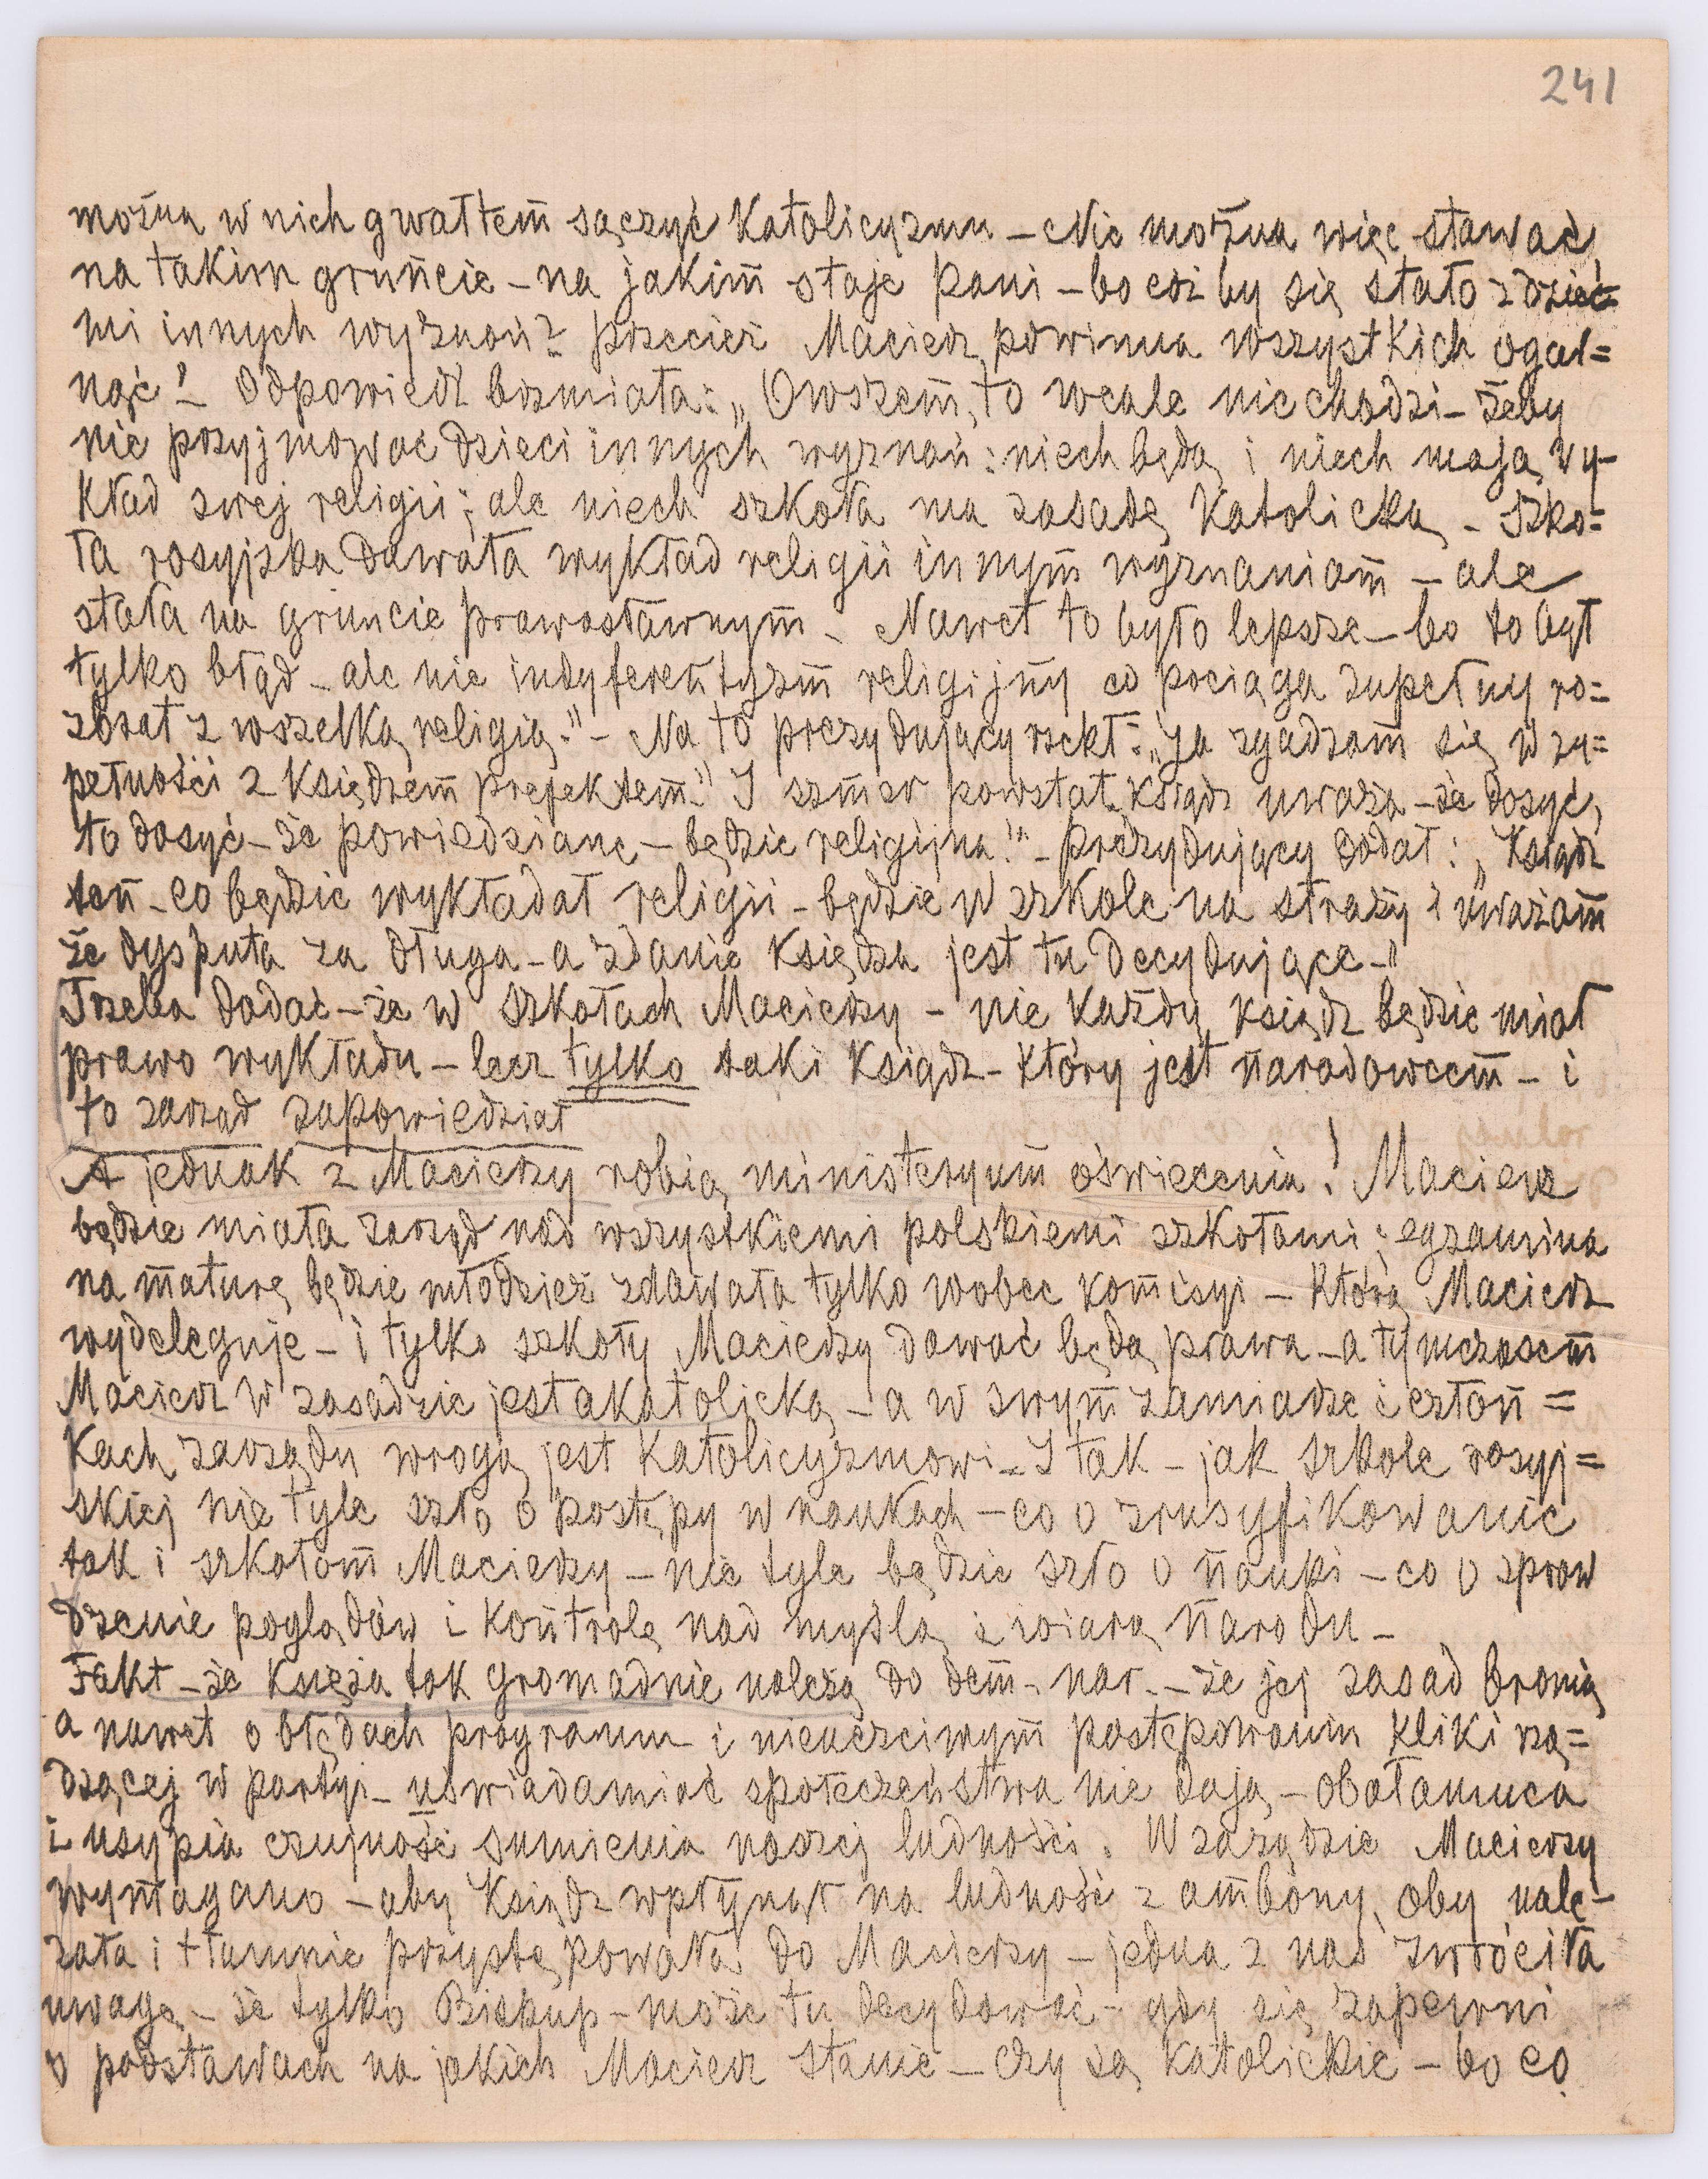 241
można w nich gwałtem sączyć Katolicyzmu – Nie można więc stawać
na takim gruncie – na jakim staje pani – bo cóż by się stało z dzieć=
mi innych wyznań? przecież Macierz powinna wszystkich ogar=
nąć! – Odpowiedź brzmiała: „Owszem, to wcale nie chodzi – żeby
nie przyjmować dzieci innych wyznań: niech będą i niech mają wy-
kład swej religii; ale niech szkoła ma zasadę Katolicką – Szko=
ła rosyjska dawała wykład religii innym wyznaniom – ale
stała na gruncie prawosławnym – Nawet to było lepsze – bo to był
tylko błąd – ale nie indyferentyzm religijny co pociąga zupełny ro=
zbrat z wszelką religią." – Na to prezydujący rzekł: „Ja zgadzam się w zu=
pełności z Księdzem prefektem." I szmer powstał „Ksiądz uważa – że dosyć,
to dosyć – że powiedziane – będzie religijna!" – prezydujący dodał: „Ksiądz
ten – co będzie wykładał religii – będzie w szkole na straży i uważam
że dysputa za długa – a zdanie Księdza jest tu decydujące –"
Trzeba dodać – że w Szkołach Macierzy – nie każdy ksiądz będzie miał
prawo wykładu – lecz tylko taki Ksiądz – który jest narodowcem – i
to zarząd zapowiedział
A jednak z Macierzy robią ministeryum oświecenia! Macierz
będzie miała zarząd nad wszystkiemi polskiemi szkołami; egzamina
na maturę będzie młodzież zdawała tylko wobec komisyi – którą Macierz
wydeleguje – i tylko szkoły Macierzy dawać będą prawa – a tymczasem
Macierz w zasadzie jest akatolicką – a w swym zamiarze i człon=
Kach zarządu wrogą jest Katolicyzmowi – I tak – jak szkole rosyj=
skiej nie tyle szło o postępy w naukach – co o zrusyfikowanie
tak i szkołom Macierzy – nie tyle będzie szło o nauki – co o spraw
dzenie poglądów i Kontrolę nad myślą i wiarą Narodu –
Fakt – że Księża tak gromadnie należą do dem. nar. – że jej zasad bronią
a nawet o błędach programu i nieuczciwym postępowaniu kliki rzą=
dzącej w partyi – uświadamiać społeczeństwa nie dają – obałamuca
i usypia czujność sumienia naszej ludności. W zarządzie Macierzy
wymagano – aby Ksiądz wpłynął na ludność z ambony, aby nale-
żała i tłumnie przystępowała do Macierzy – jedna z nas zwróciła
uwagę – że tylko Biskup – może tu decydować – gdy się zapewni
o podstawach na jakich Macierz stanie – czy są katolickie – bo co